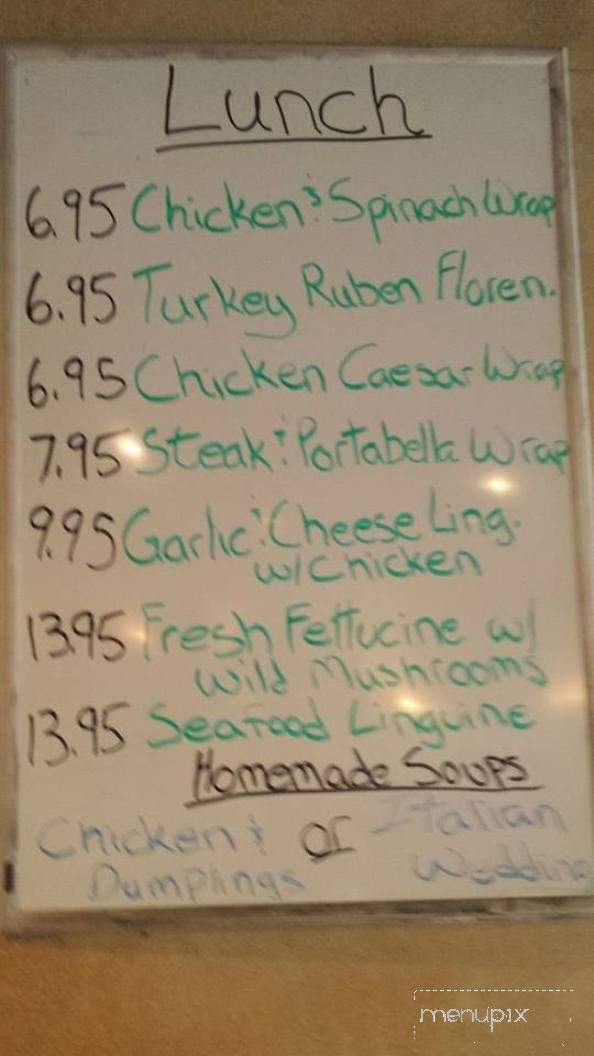 Lunch
6.95 Chicken & Spinach Wrap
6.95 Turkey Ruben Floren.
6.95 Chicken Caesar Wrap
7.95 Steak & Portabella Wrap
9.95 Garlic & Cheese Ling.
w/ Chicken
13.95 Fresh Fettucine w/
Wild Mushrooms
13.95 Seafood Linguine
Homemade Soups
Chicken & or Italian
Dumplings Wedding
menupix